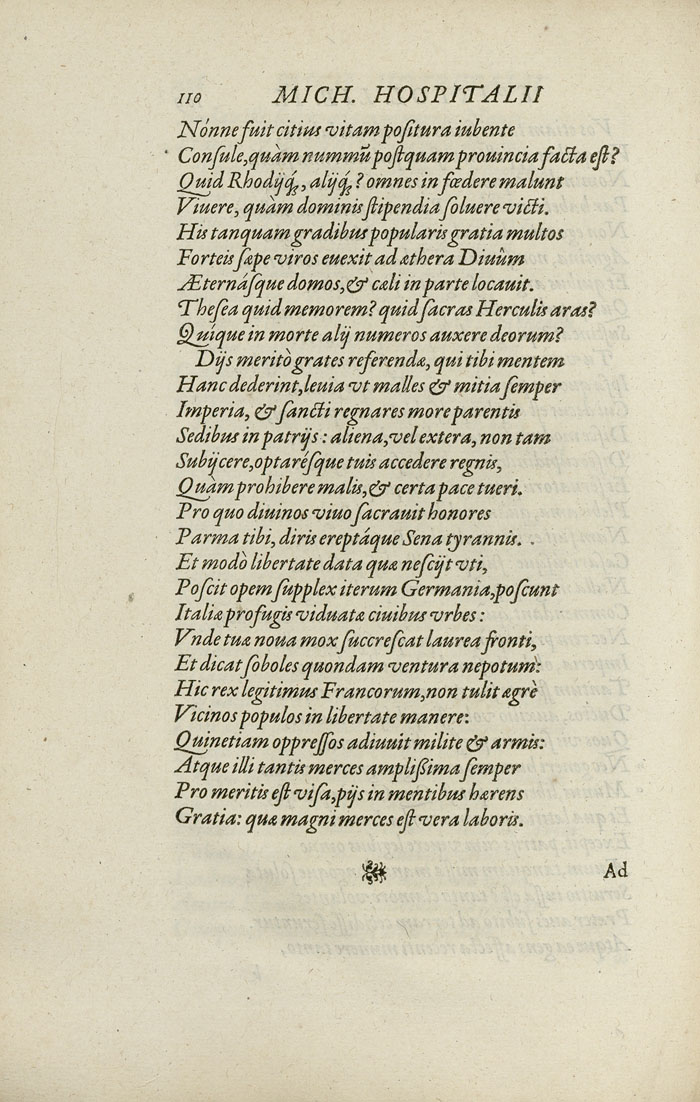 110 MICH. HOSPITALII
Nónne fuit citius vitam poſitura iubente
Conſule, quàm nummũ poſtquam prouincia facta eſt?
Quid Rhodijq́₃, alijq́₃? omnes in fœdere malunt
Viuere, quàm dominis ſtipendia ſoluere victi.
His tanquam gradibus popularis gratia multos
Forteis ſæpe viros euexit ad æthera Diuûm
Æternáſque domos, & cæli in parte locauit.
Theſea quid memorem? quid ſacras Herculis aras?
Quíque in morte alij numeros auxere deorum?
Dijs meritò grates referendæ, qui tibi mentem
Hanc dederint, leuia vt malles & mitia ſemper
Imperia, & ſancti regnares more parentis
Sedibus in patrijs: aliena, vel extera, non tam
Subijcere, optaréſque tuis accedere regnis,
Quàm prohibere malis, & certa pace tueri.
Pro quo diuinos viuo ſacrauit honores
Parma tibi, diris ereptáque Sena tyrannis.
Et modò libertate data quæ neſcijt vti,
Poſcit opem ſupplex iterum Germania, poſcunt
Italiæ profugis viduatæ ciuibus vrbes:
Vnde tuæ noua mox ſuccreſcat laurea fronti,
Et dicat ſoboles quondam ventura nepotum:
Hic rex legitimus Francorum, non tulit ægrè
Vicinos populos in libertate manere:
Quinetiam oppreſſos adiuuit milite & armis:
Atque illi tantis merces ampliſſima ſemper
Pro meritis eſt viſa, pijs in mentibus hærens
Gratia: quæ magni merces eſt vera laboris.
Ad